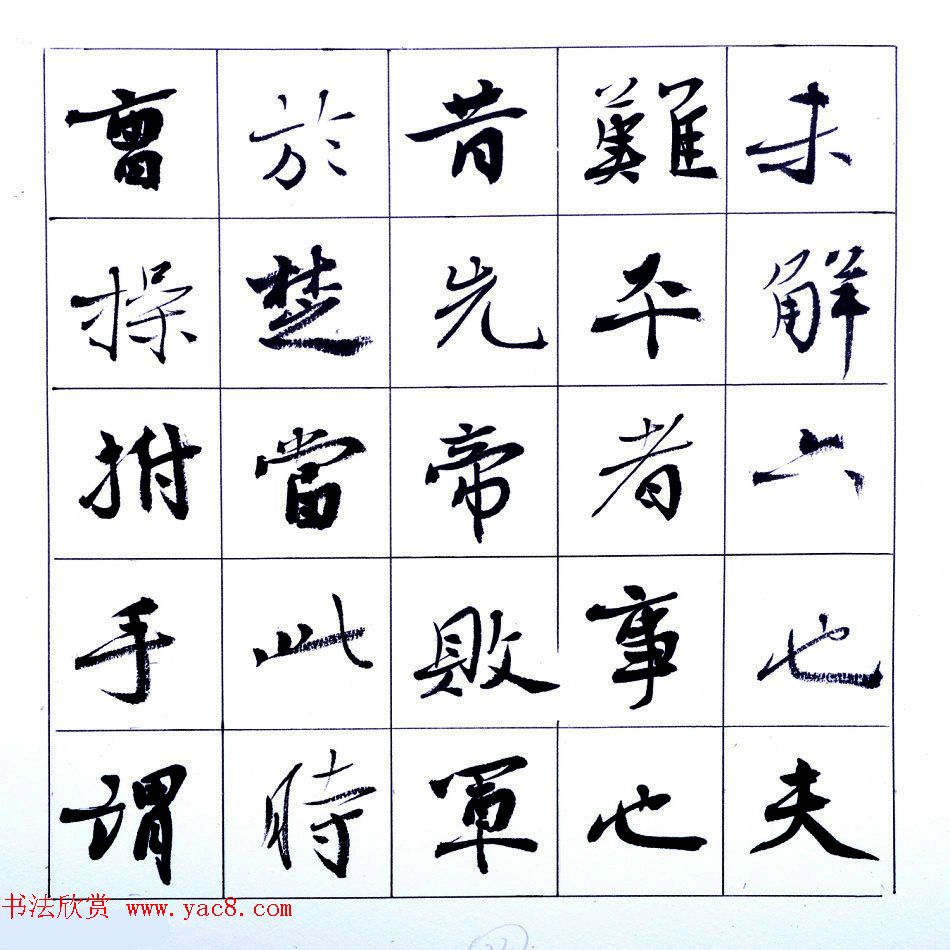 未解六也夫
難平者事也
昔先帝敗軍
於楚當此時
曹操拊手謂
书法欣赏 www.yac8.com